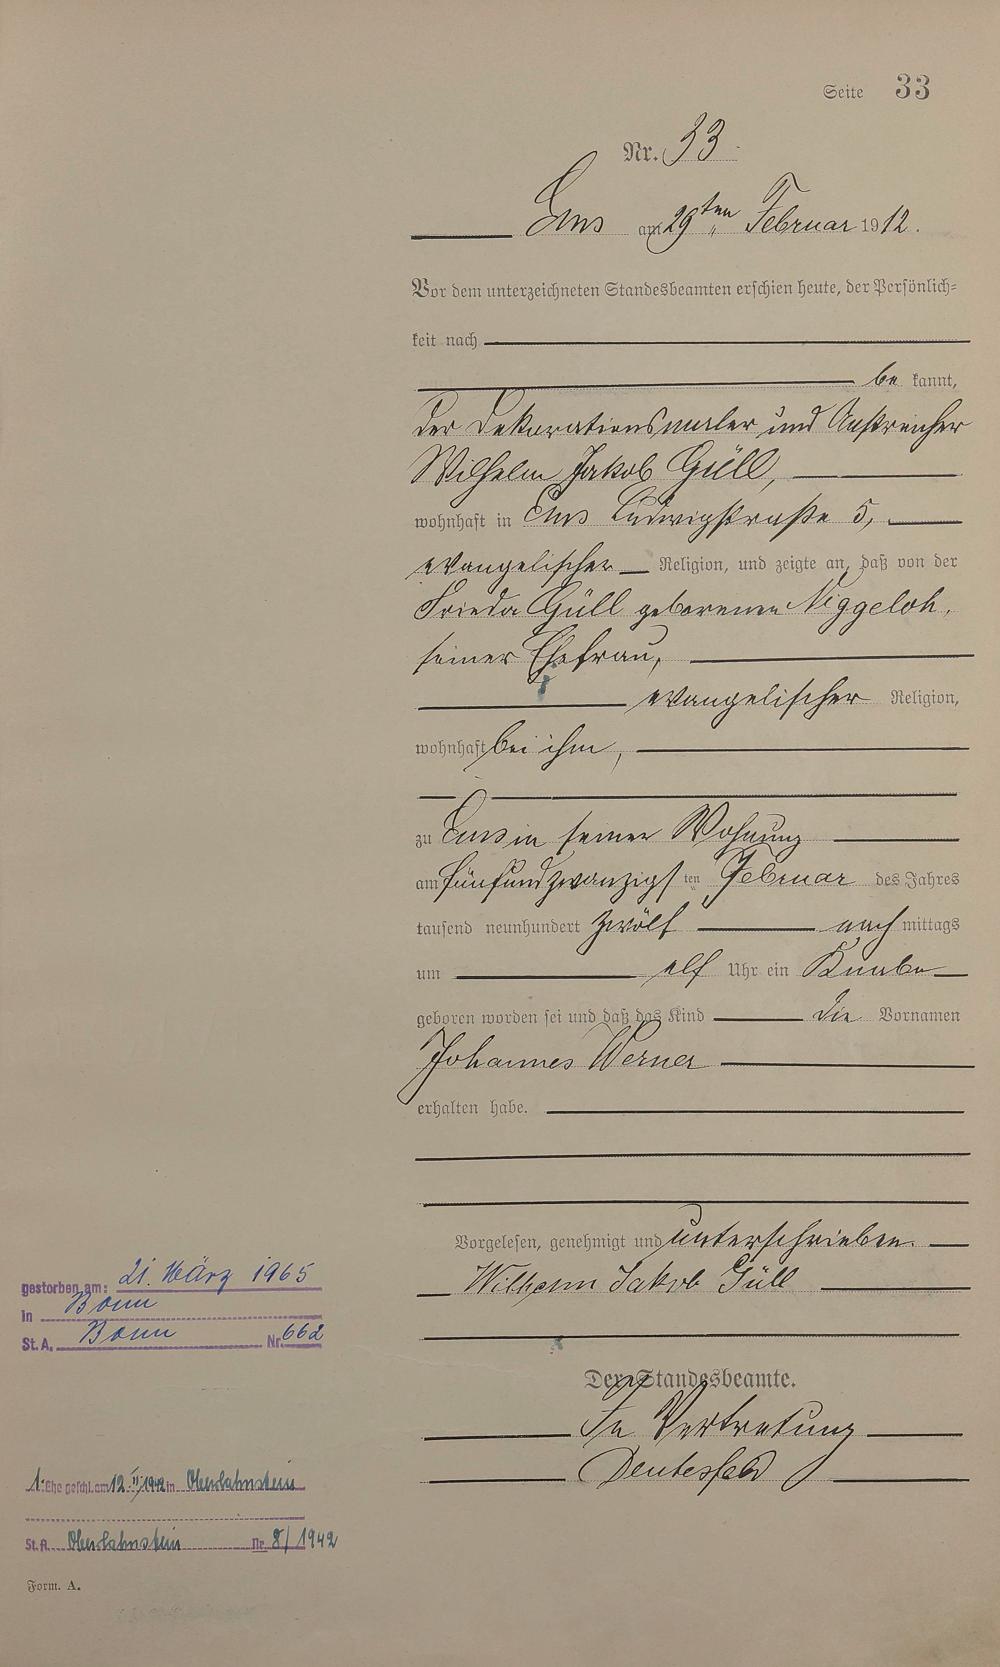 Seite 33
Nr. 33
Ems am 29ten Februar 1912.
Vor dem unterzeichneten Standesbeamten erschien heute, der Persönlich=
keit nach
be kannt,
der Dekorationsmaler und Anstreicher
Wilhelm Jakob Güll,
wohnhaft in Ems Ludwigstraße 5,
evangelischer Religion, und zeigte an, daß von der
Frieda Güll geborenen Niggeloh,
seiner Ehefrau,
evangelischer Religion,
wohnhaft bei ihm,
zu Ems in seiner Wohnung
am fünfundzwanzigsten Februar des Jahres
tausend neunhundert zwölf nach mittags
um elf Uhr ein Knabe
geboren worden sei und daß das Kind die Vornamen
Johannes Werner
erhalten habe.
Vorgelesen, genehmigt und unterschrieben.
Wilhelm Jakob Güll
Der Standesbeamte.
In Vertretung
gestorben am: 21. März 1965
in Bonn
St. A. Bonn Nr. 662
1. Ehe geschl. am 12. II. 1942 in Oberlahnstein
St. A. Oberlahnstein Nr. 8/1942
Form. A.